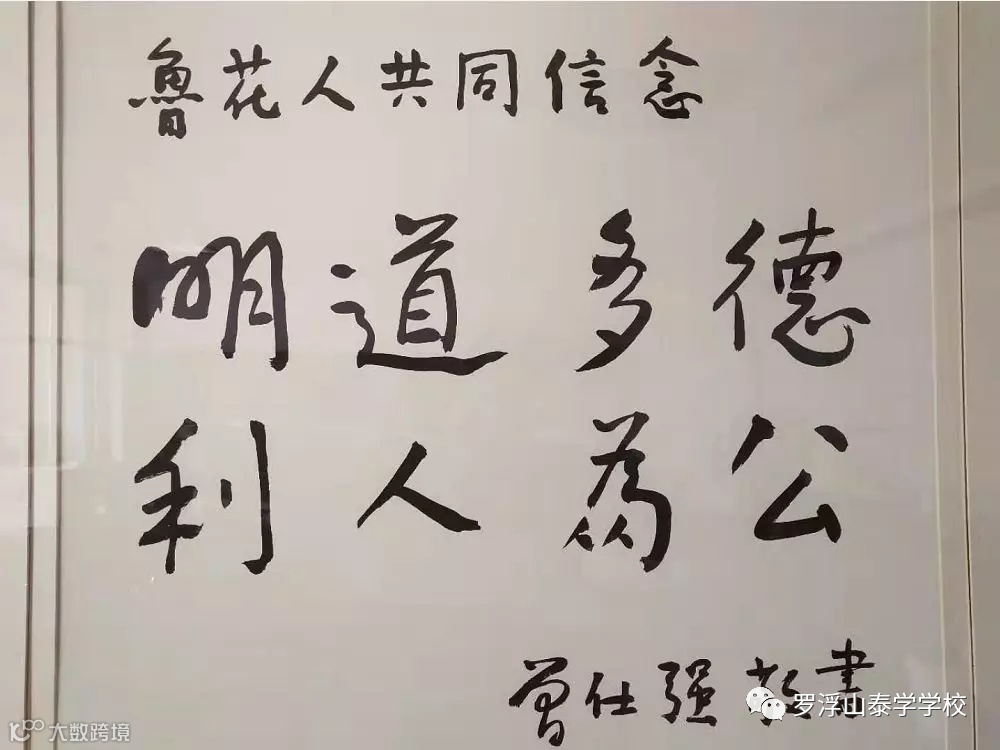 魯花人共同信念
明道多德
利人為公
曾仕强敬書
罗浮山泰学学校
100 大数跨境